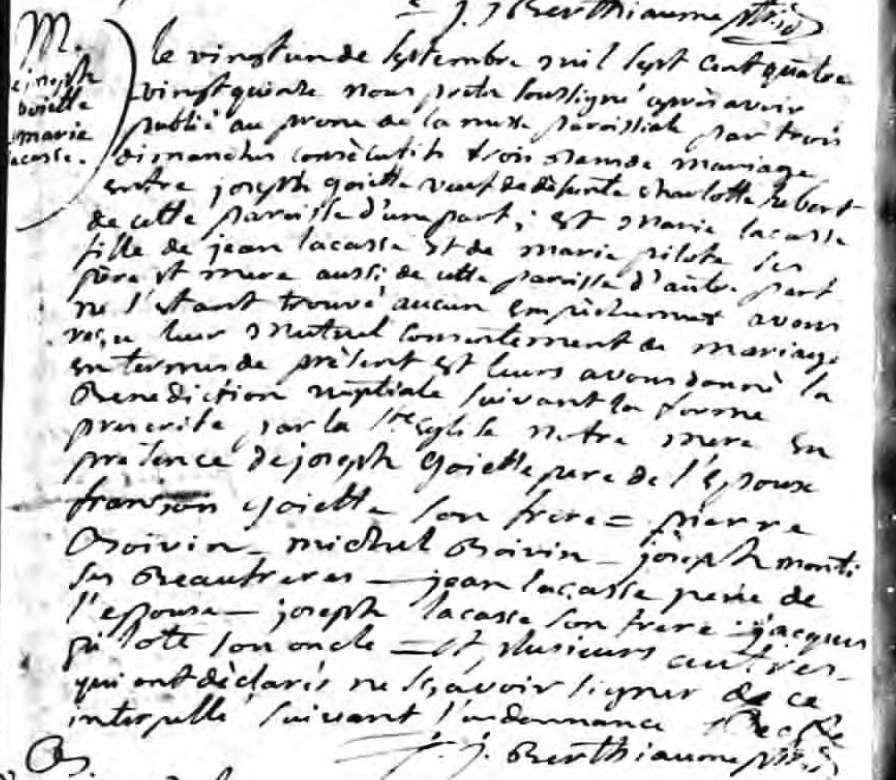 J. J. Berthiaume ptre
M.
joseph
Goiette
marie
lacasse.
le vingtunde septembre mil sept cent quatre
vingt quinze nous pretre soussigné aprèsavoir
publié au prone de la messe paroissiale par trois
dimanches consécutifs trois bansde mariage
entre joseph goiette veuf dedéfunte charlotte hebert
de cette paroisse d'une part; et Marie lacasse
fille de jean lacasse et de marie pilote ses
père et mere aussi de cette paroisse d'autre part
ne s'etant trouvé aucun empêchement avons
reçu leur Mutuel consentement de mariage
en termes de présent et leurs avonsdonné la
Benediction nuptiale suivant la forme
prescrite par la Ste Eglise notre mere en
présence de joseph Goiette pere de l'époux
françois goiette son frere = pierre
Boivin - michel Boivin - joseph
ses Beaufreres - jean lacasse pere de
l'epouse - joseph lacasse son frere - jacques
pilote son oncle = et plusieurs autres
qui ont déclarés ne sçavoir signer de ce
interpellé suivant l'ordonnance
J. J. Berthiaume ptre